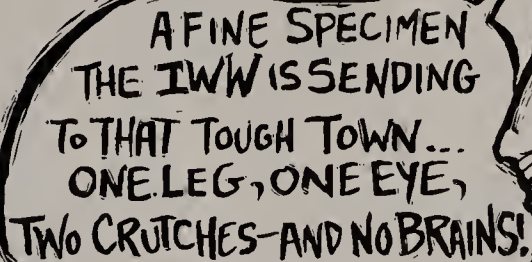 A FINE SPECIMEN
THE IWW IS SENDING
TO THAT TOUGH TOWN...
ONE LEG, ONE EYE,
TWO CRUTCHES-AND NO BRAINS!